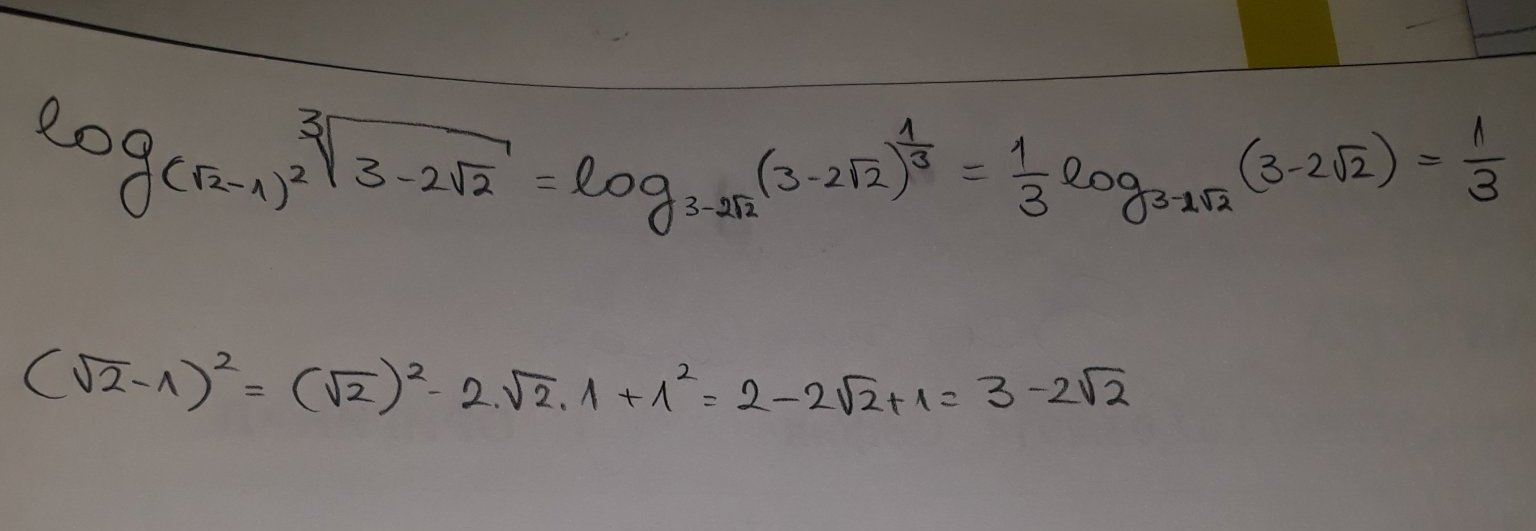 log_{(√2-1)²} ∛(3-2√2) = log_{3-2√2} (3-2√2)^{1/3} = 1/3 log_{3-2√2} (3-2√2) = 1/3
(√2-1)² = (√2)² - 2.√2.1 + 1² = 2-2√2+1 = 3-2√2